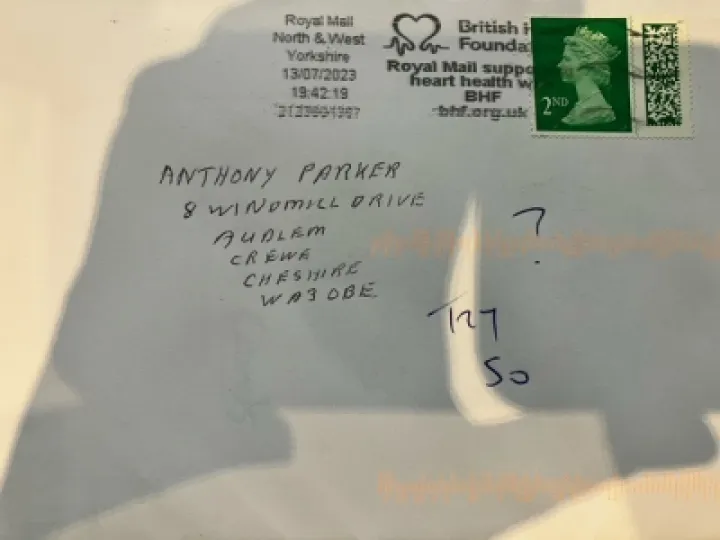 Royal Mail
North & West
Yorkshire
13/07/2023
19:42:19
British H
Founda
Royal Mail suppo
heart health w
BHF
bhf.org.uk
2ND
ANTHONY PARKER
8 WINDMILL DRIVE
AUDLEM
CREWE
CHESHIRE
WA3 0BE
?
TRY
50